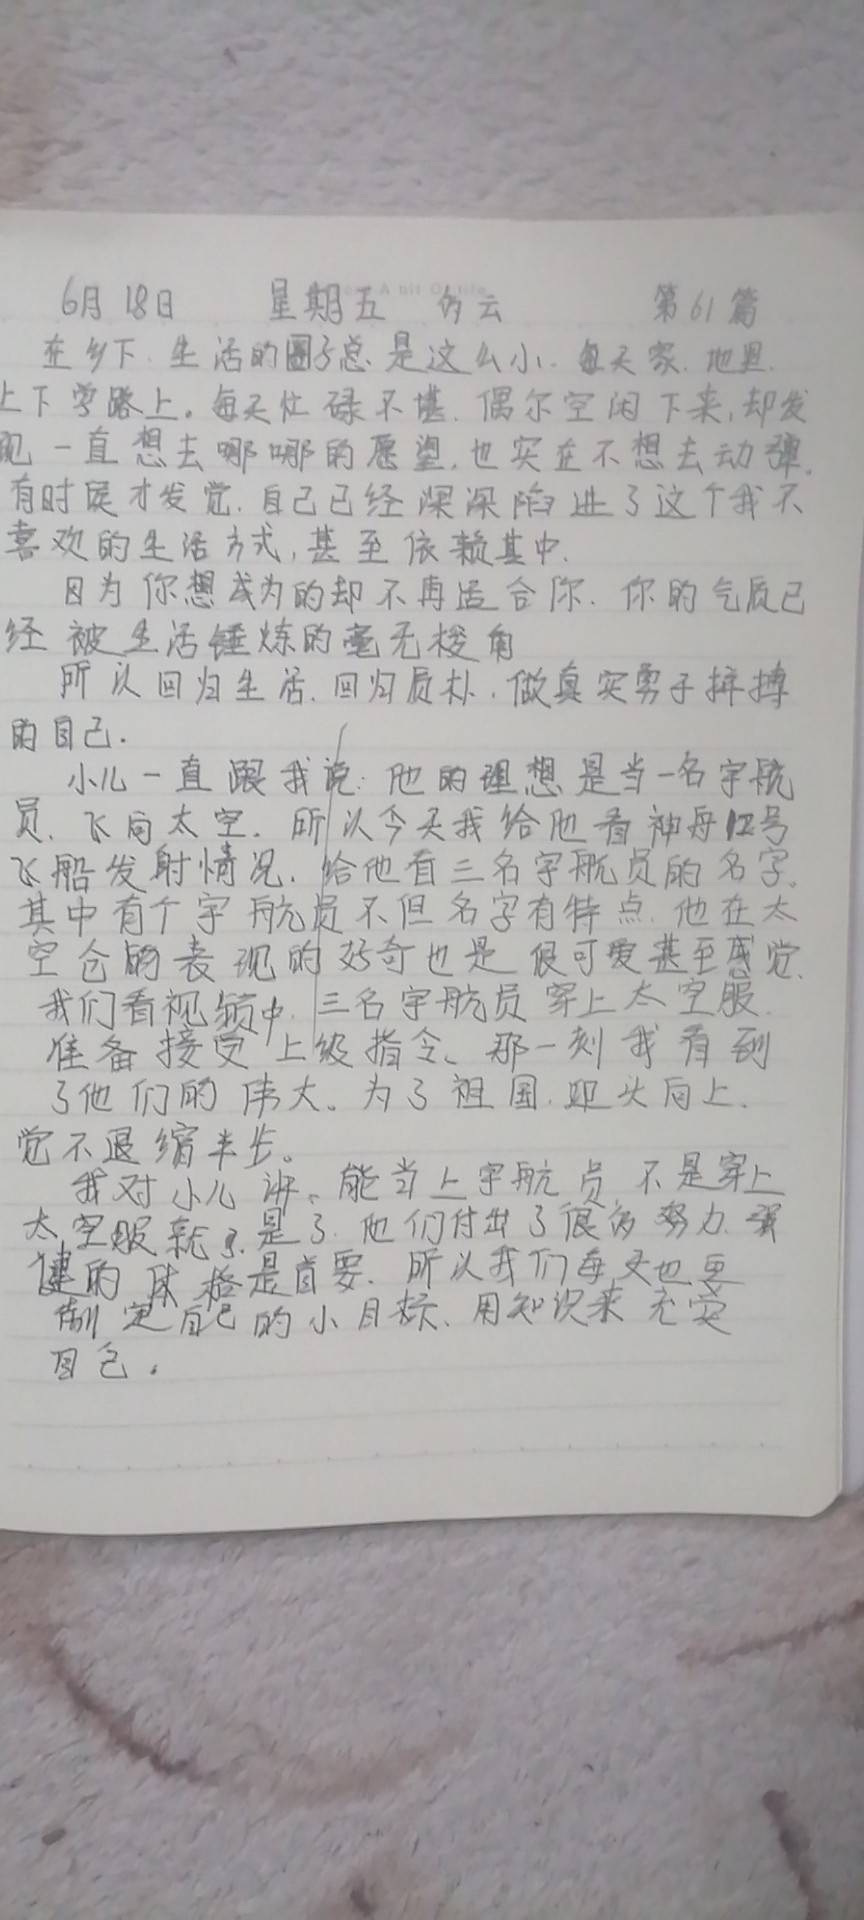 6月18日 星期五 多云 第61篇
在乡下.生活的圈子总是这么小.每天家.地里.
上下学路上。每天忙碌不堪.偶尔空闲下来,却发
现一直想去哪哪的愿望,也实在不想去动弹.
有时候才发觉.自己已经深深陷进了这个我不
喜欢的生活方式,甚至依赖其中.
因为你想成为的却不再适合你.你的气质已
经被生活锤炼的毫无棱角
所以回归生活.回归质朴.做真实勇于拼搏
的自己.
小儿一直跟我说:他的理想是当一名宇航
员.飞向太空.所以今天我给他看神舟12号
飞船发射情况.给他看三名宇航员的名字.
其中有个宇航员不但名字有特点.他在太
空仓的表现的好奇也是很可爱甚至感觉.
我们看视频中.三名宇航员穿上太空服.
准备接受上级指令、那一刻我看到
了他们的伟大。为了祖国.迎头向上.
觉不退缩半步。
我对小儿讲、能当上宇航员不是穿上
太空服就是了.他们付出了很多努力.强
健的体格是首要.所以我们每天也要
制定自己的小目标.用知识来充实
自己.